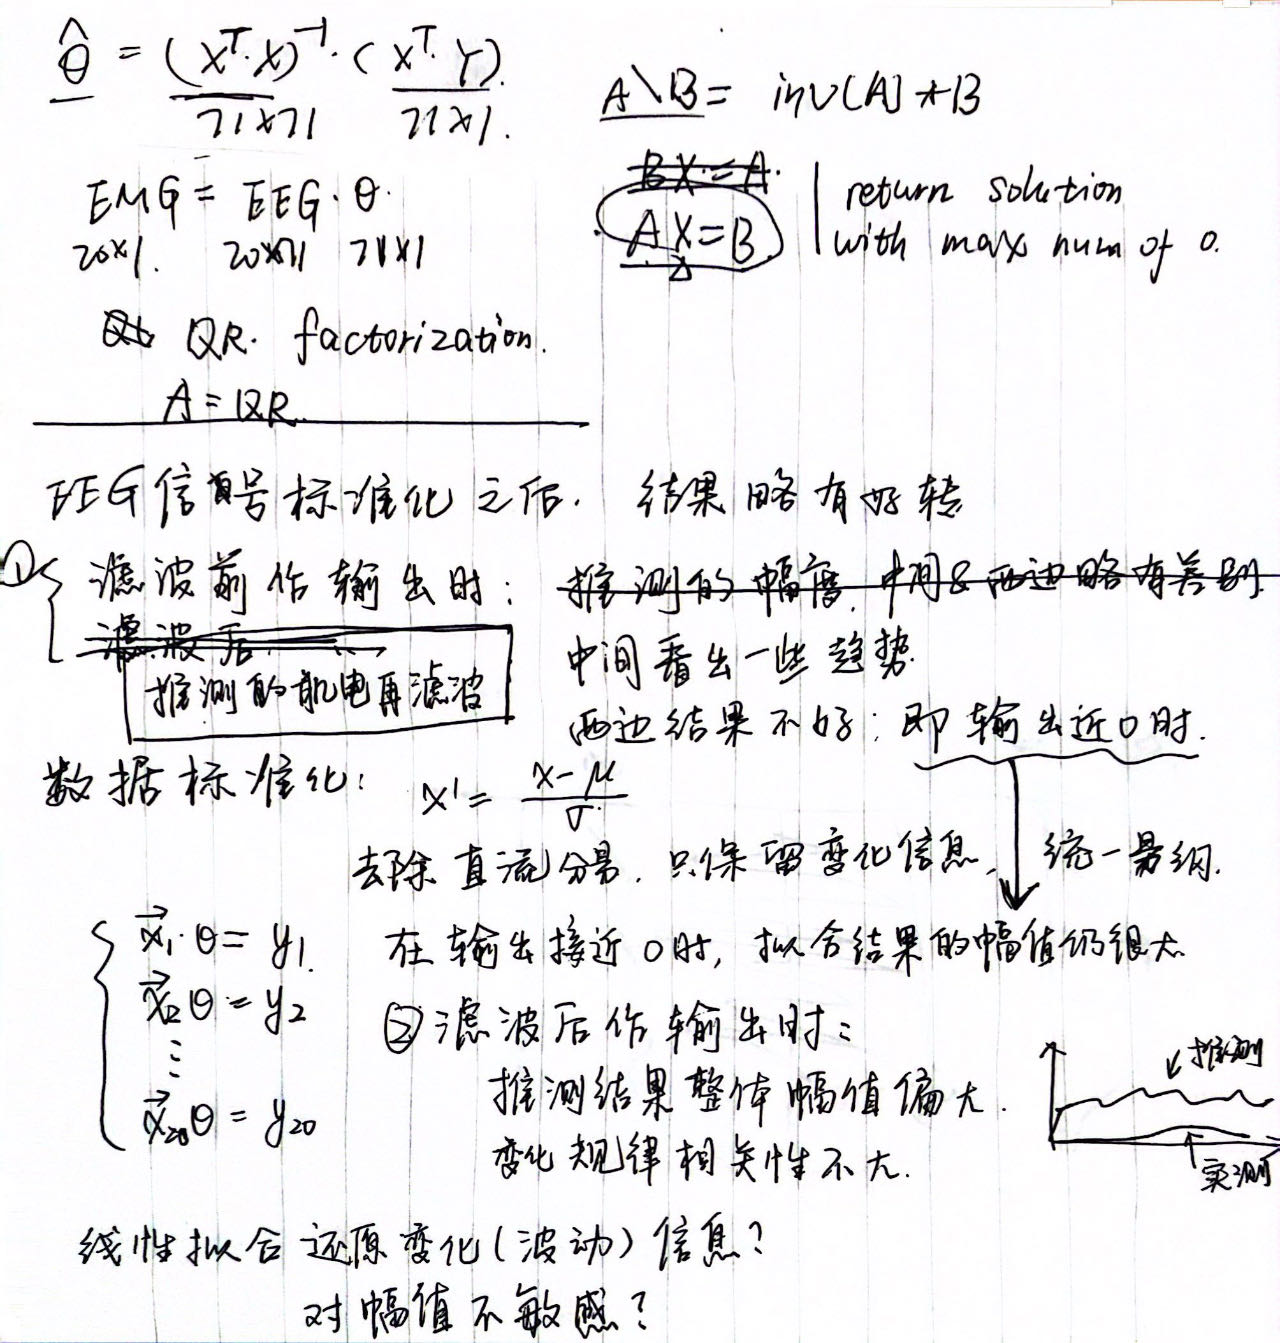 θ̂ = (X^T·X)^-1·(X^T·Y).
71×71 71×1.
A\B = inv(A)*B
EMG = EEG·θ.
20×1. 20×71 71×1
BX=A.
AX=B
return solution
with max num of 0.
QR. factorization.
A=QR.
EEG信号标准化之后. 结果略有好转
① 滤波前作输出时: 推测的幅度, 中间&两边略有差别.
滤波后
中间看出一些趋势.
推测的肌电再滤波
两边结果不好; 即输出近0时.
数据标准化: x' = (x-μ)/σ
去除直流分量, 只保留变化信息, 统一量纲.
x⃗₁·θ = y₁.
在输出接近0时, 拟合结果的幅值仍很大
x⃗₂θ = y₂
⋮
x⃗₂₀θ = y₂₀
②滤波后作输出时:
推测结果整体幅值偏大.
变化规律相关性不大.
推测
实测
线性拟合还原变化(波动)信息?
对幅值不敏感?